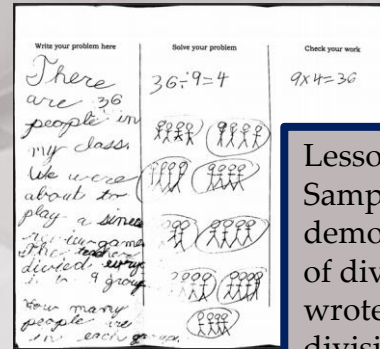 Write your problem here
There
are 36
people in
my class.
We were
about to
play a
game
The teacher
divided
in 9 group
how many
people are
in each
Solve your problem
36÷9=4
Check your work
9x4=36
Lesso
Samp
demo
of div
wrote
divisi